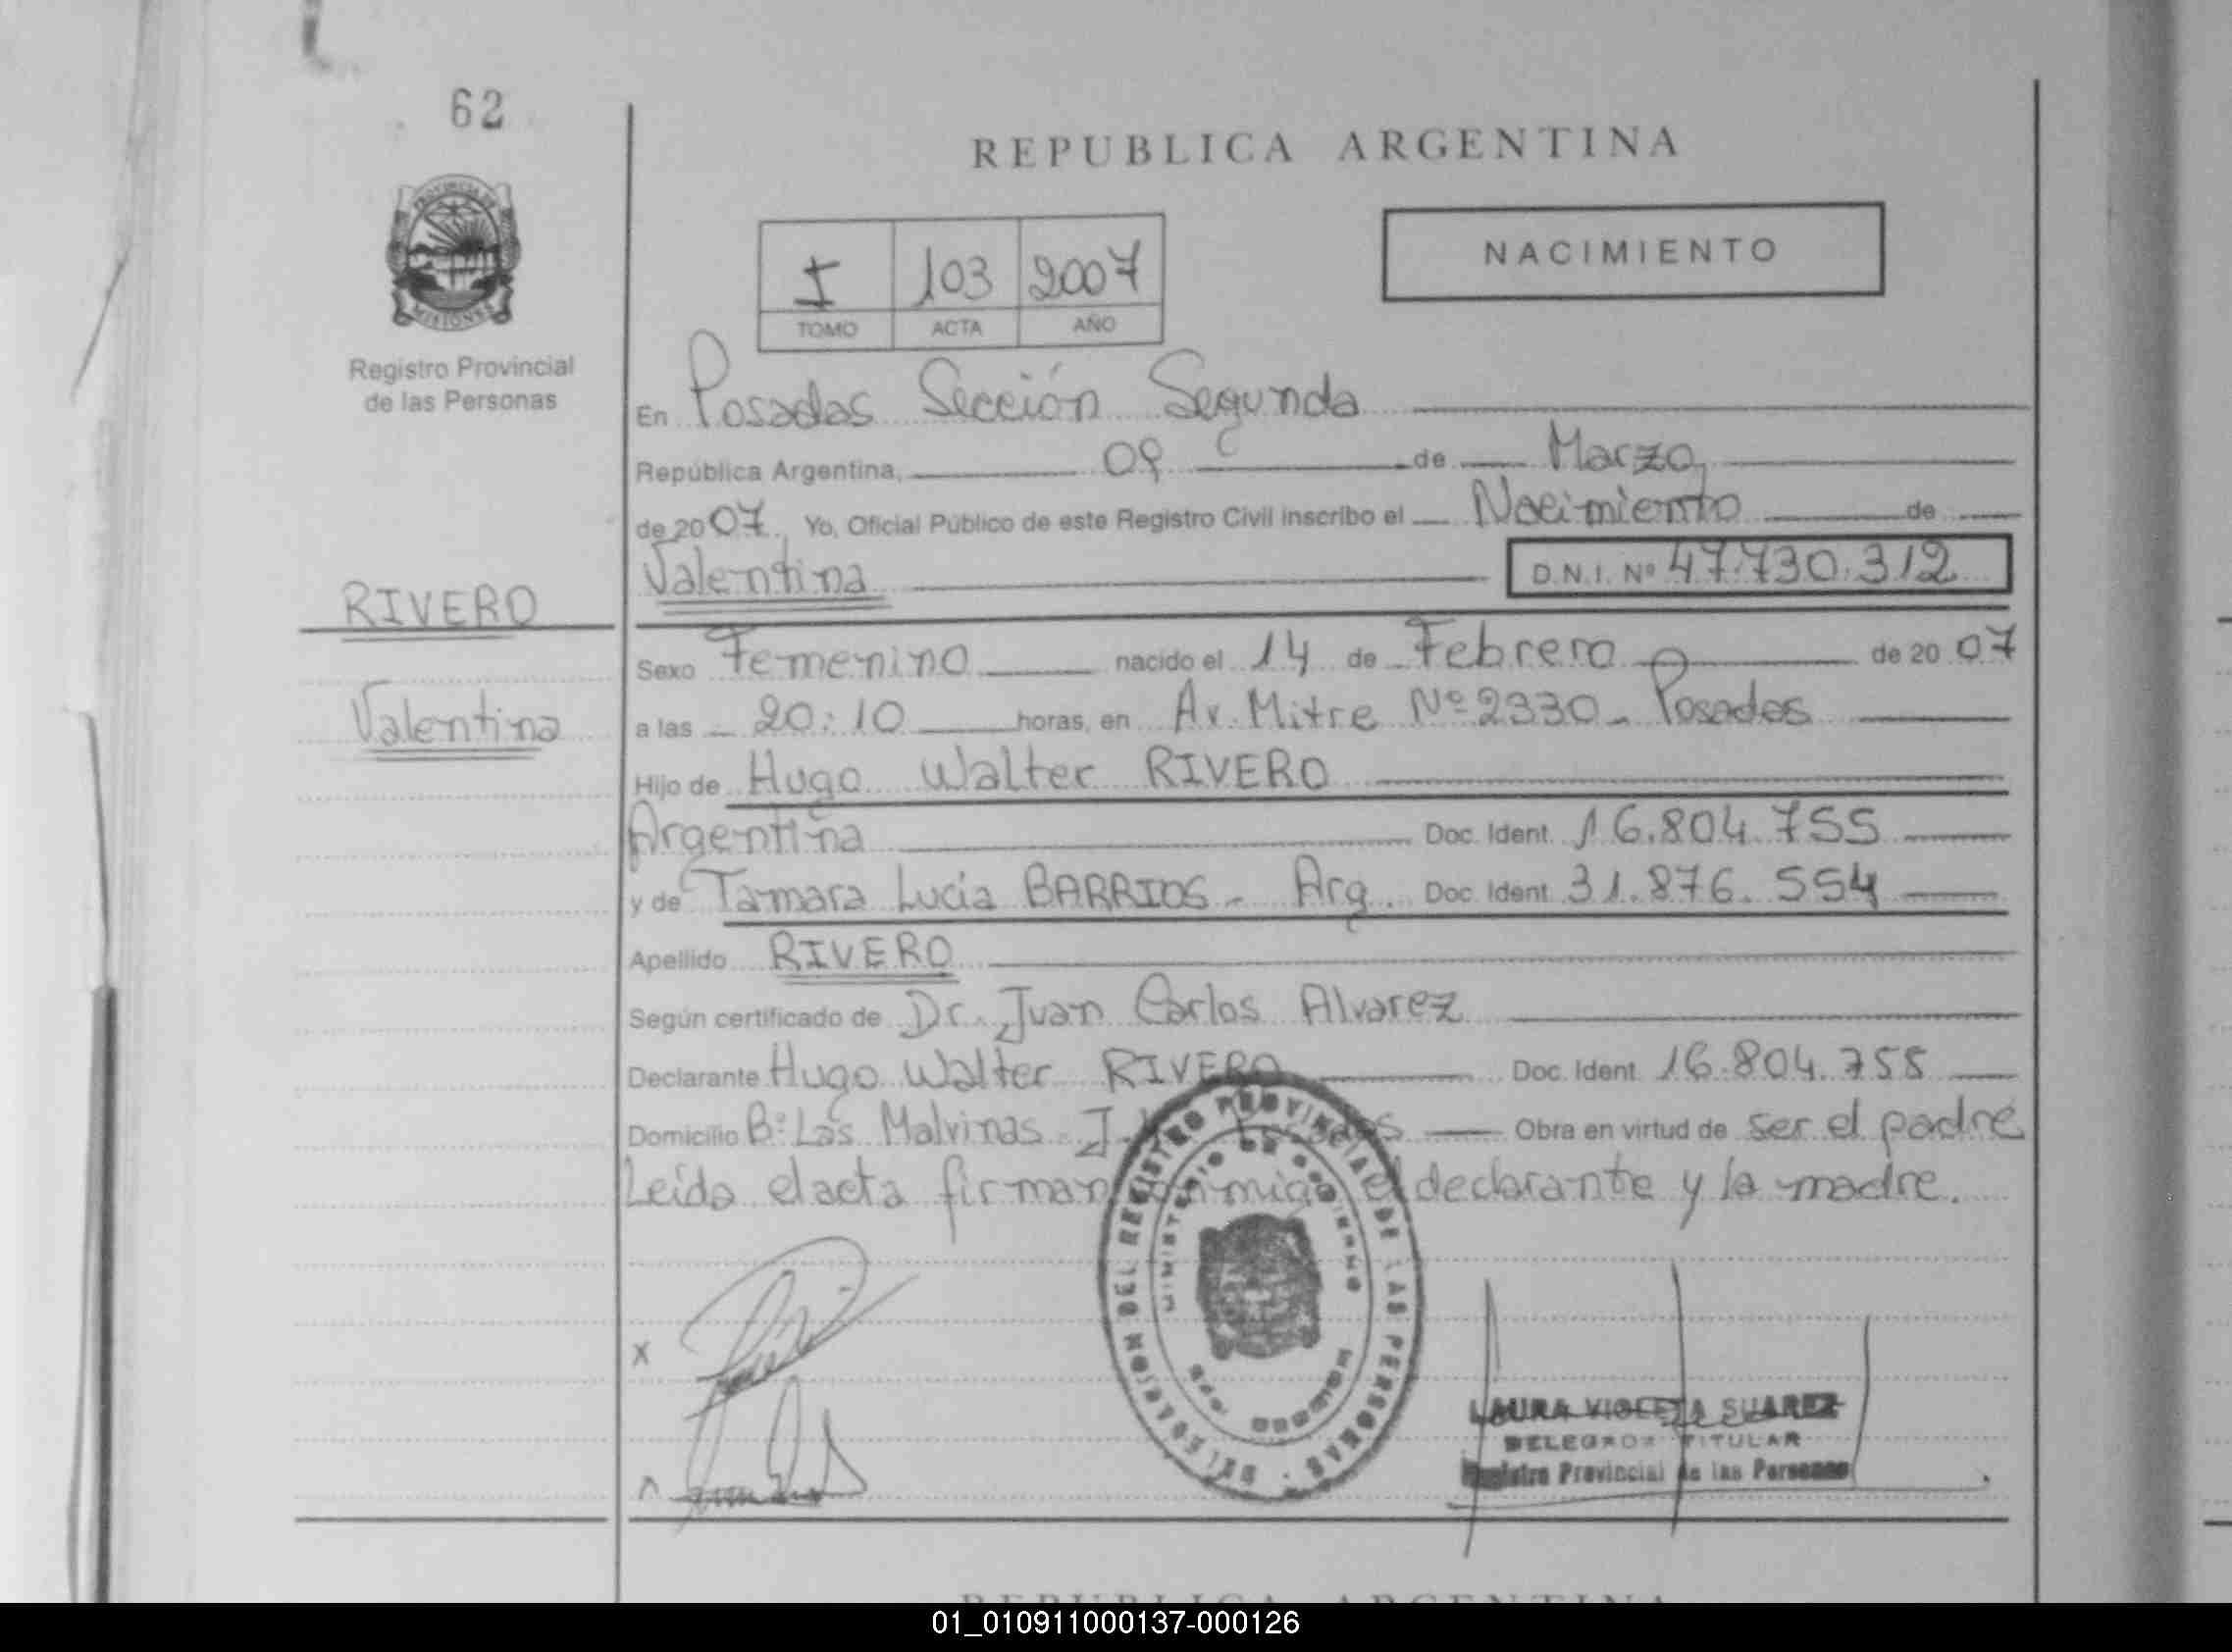 62
REPUBLICA ARGENTINA
PROVINCIA DE
MISIONES
Registro Provincial
de las Personas
NACIMIENTO
I 103 2007
TOMO ACTA AÑO
En Posadas Sección Segunda
República Argentina, 09 de Marzo,
de 2007. Yo, Oficial Público de este Registro Civil inscribo el Nacimiento de
Valentina D.N.I. Nº 47.730.312
RIVERO
Sexo Femenino nacido el 14 de Febrero de 2007
Valentina
a las 20:10 horas, en Av. Mitre Nº 2330 - Posadas
Hijo de Hugo Walter RIVERO
Argentina Doc. Ident. 16.804.755
y de Tamara Lucía BARRIOS - Arg. Doc. Ident. 31.876.554
Apellido RIVERO
Según certificado de Dr. Juan Carlos Alvarez
Declarante Hugo Walter RIVERO Doc. Ident. 16.804.755
Domicilio Bº Las Malvinas Posadas Obra en virtud de ser el padre
Leída el acta firman conmigo el declarante y la madre.
DELEGACION DEL REGISTRO PROVINCIAL DE LAS PERSONAS
MINISTERIO DE GOBIERNO
MISIONES
X
LAURA VIOLETA SUAREZ
DELEGADA TITULAR
Registro Provincial de las Personas
REPUBLICA ARGENTINA
01_010911000137-000126